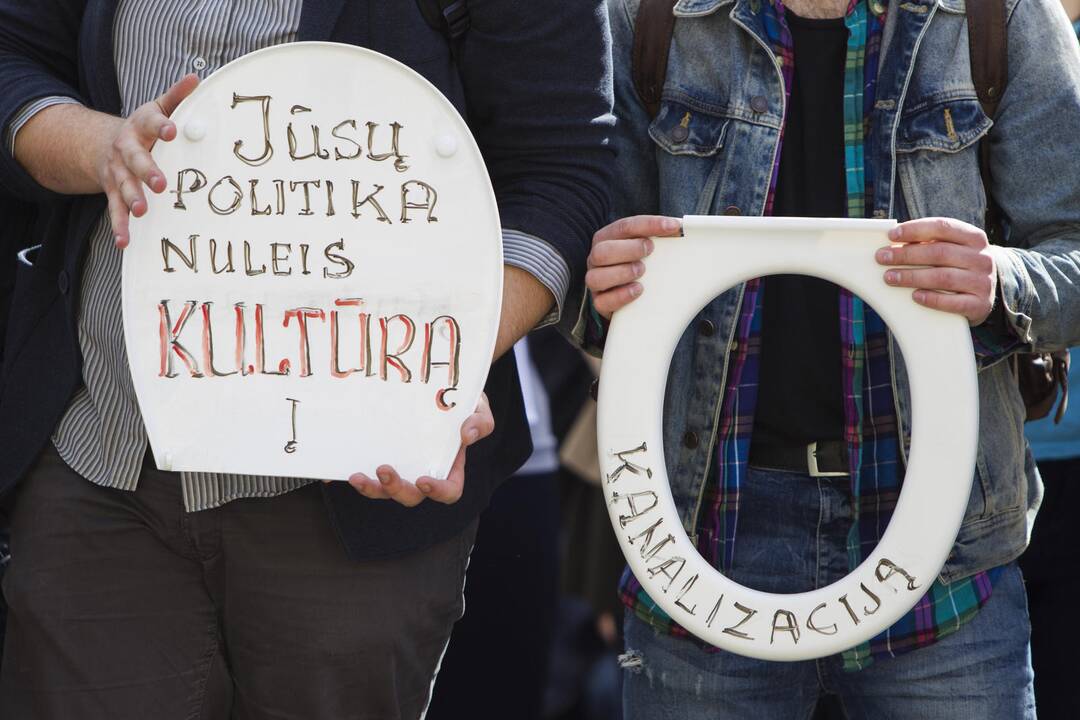 Jūsų
POLITIKA
NULEIS
KULTŪRĄ
Į
KANALIZACIJĄ